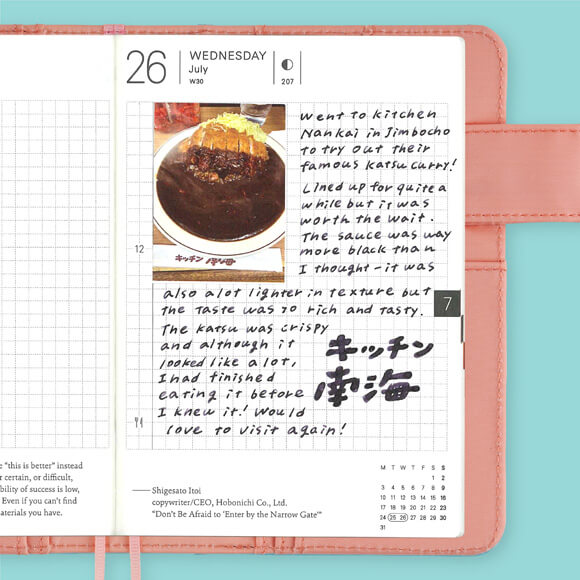 e "this is better" instead
r certain, or difficult,
bility of success is low,
Even if you can't find
aterials you have.
26
WEDNESDAY
July
W30
207
went to kitchen
Nankai in Jimbocho
to try out their
famous katsu curry!
Lined up for quite a
while but it was
worth the wait.
The sauce was way
more black than
I thought - it was
also a lot lighter in texture but
the taste was so rich and tasty.
The katsu was crispy
and although it
looked like a lot,
I had finished
eating it before
I knew it! Would
love to visit again!
キッチン 南海
12
7
キッチン
南海
Shigesato Itoi
copywriter/CEO, Hobonichi Co., Ltd.
"Don't Be Afraid to 'Enter by the Narrow Gate'"
M T W T F S S
1 2
3 4 5 6 7 8 9
10 11 12 13 14 15 16
17 18 19 20 21 22 23
24 25 26 27 28 29 30
31